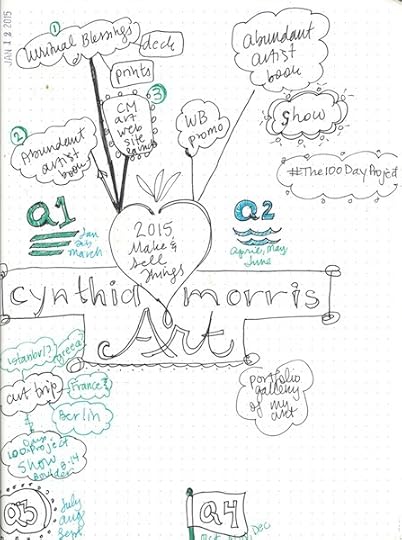 JAN 12 2015
1
Writual Blessings
deck
prints
3
CM
art
web
site
launch
2
Abundant
artist
book
WB
promo
abundant
artist
book
Show
#The100DayProject
Q1
Jan
Feb
March
2015
Make &
Sell
Things
Q2
April, May,
June
cynthia morris
Art
Istanbul?
Greece
art trip
France?
Berlin
100 Project
Show
Boulder 8-14
Portfolio
gallery
of my
art
Q3
July
Aug
Sept.
Q4
Dec